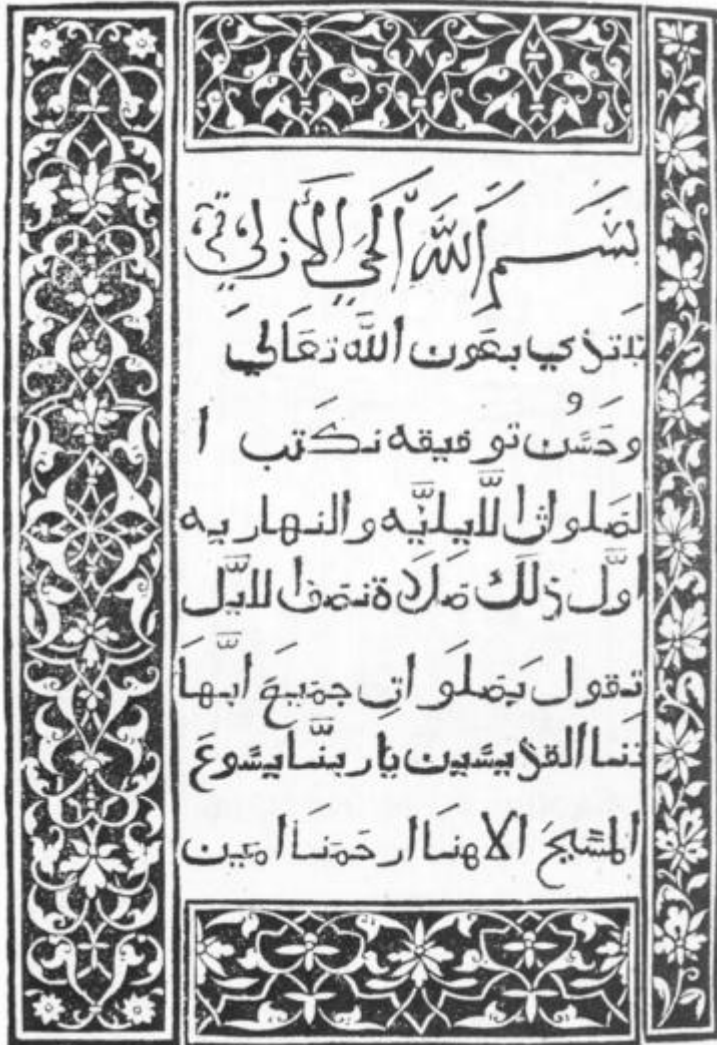 بسم الله الحي الأزلي
نبتدي بعون الله تعالي
وحسن توفيقه نكتب ا
لصلواة الليليه والنهاريه
اول ذلك صلاة نصف الليل
تقول بصلواتي جميع ابها
تنا القديسين يا ربنا يسوع
المسيح الاهنا ارحمنا امين